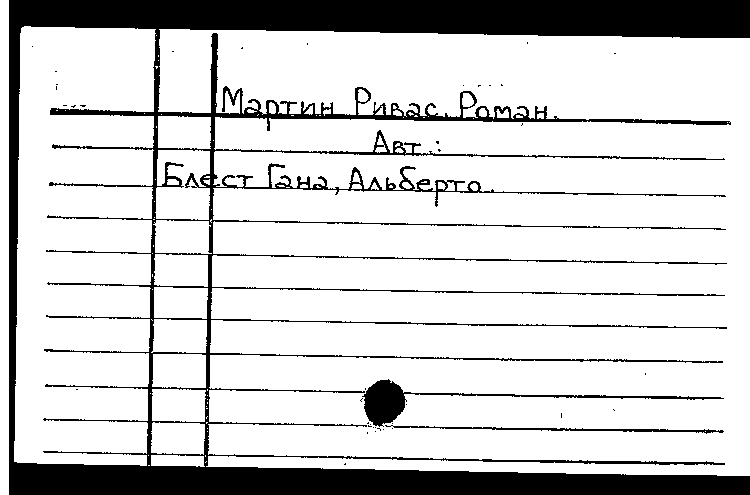 Мартин Ривас. Роман.
Авт.:
Блест Гана, Альберто.